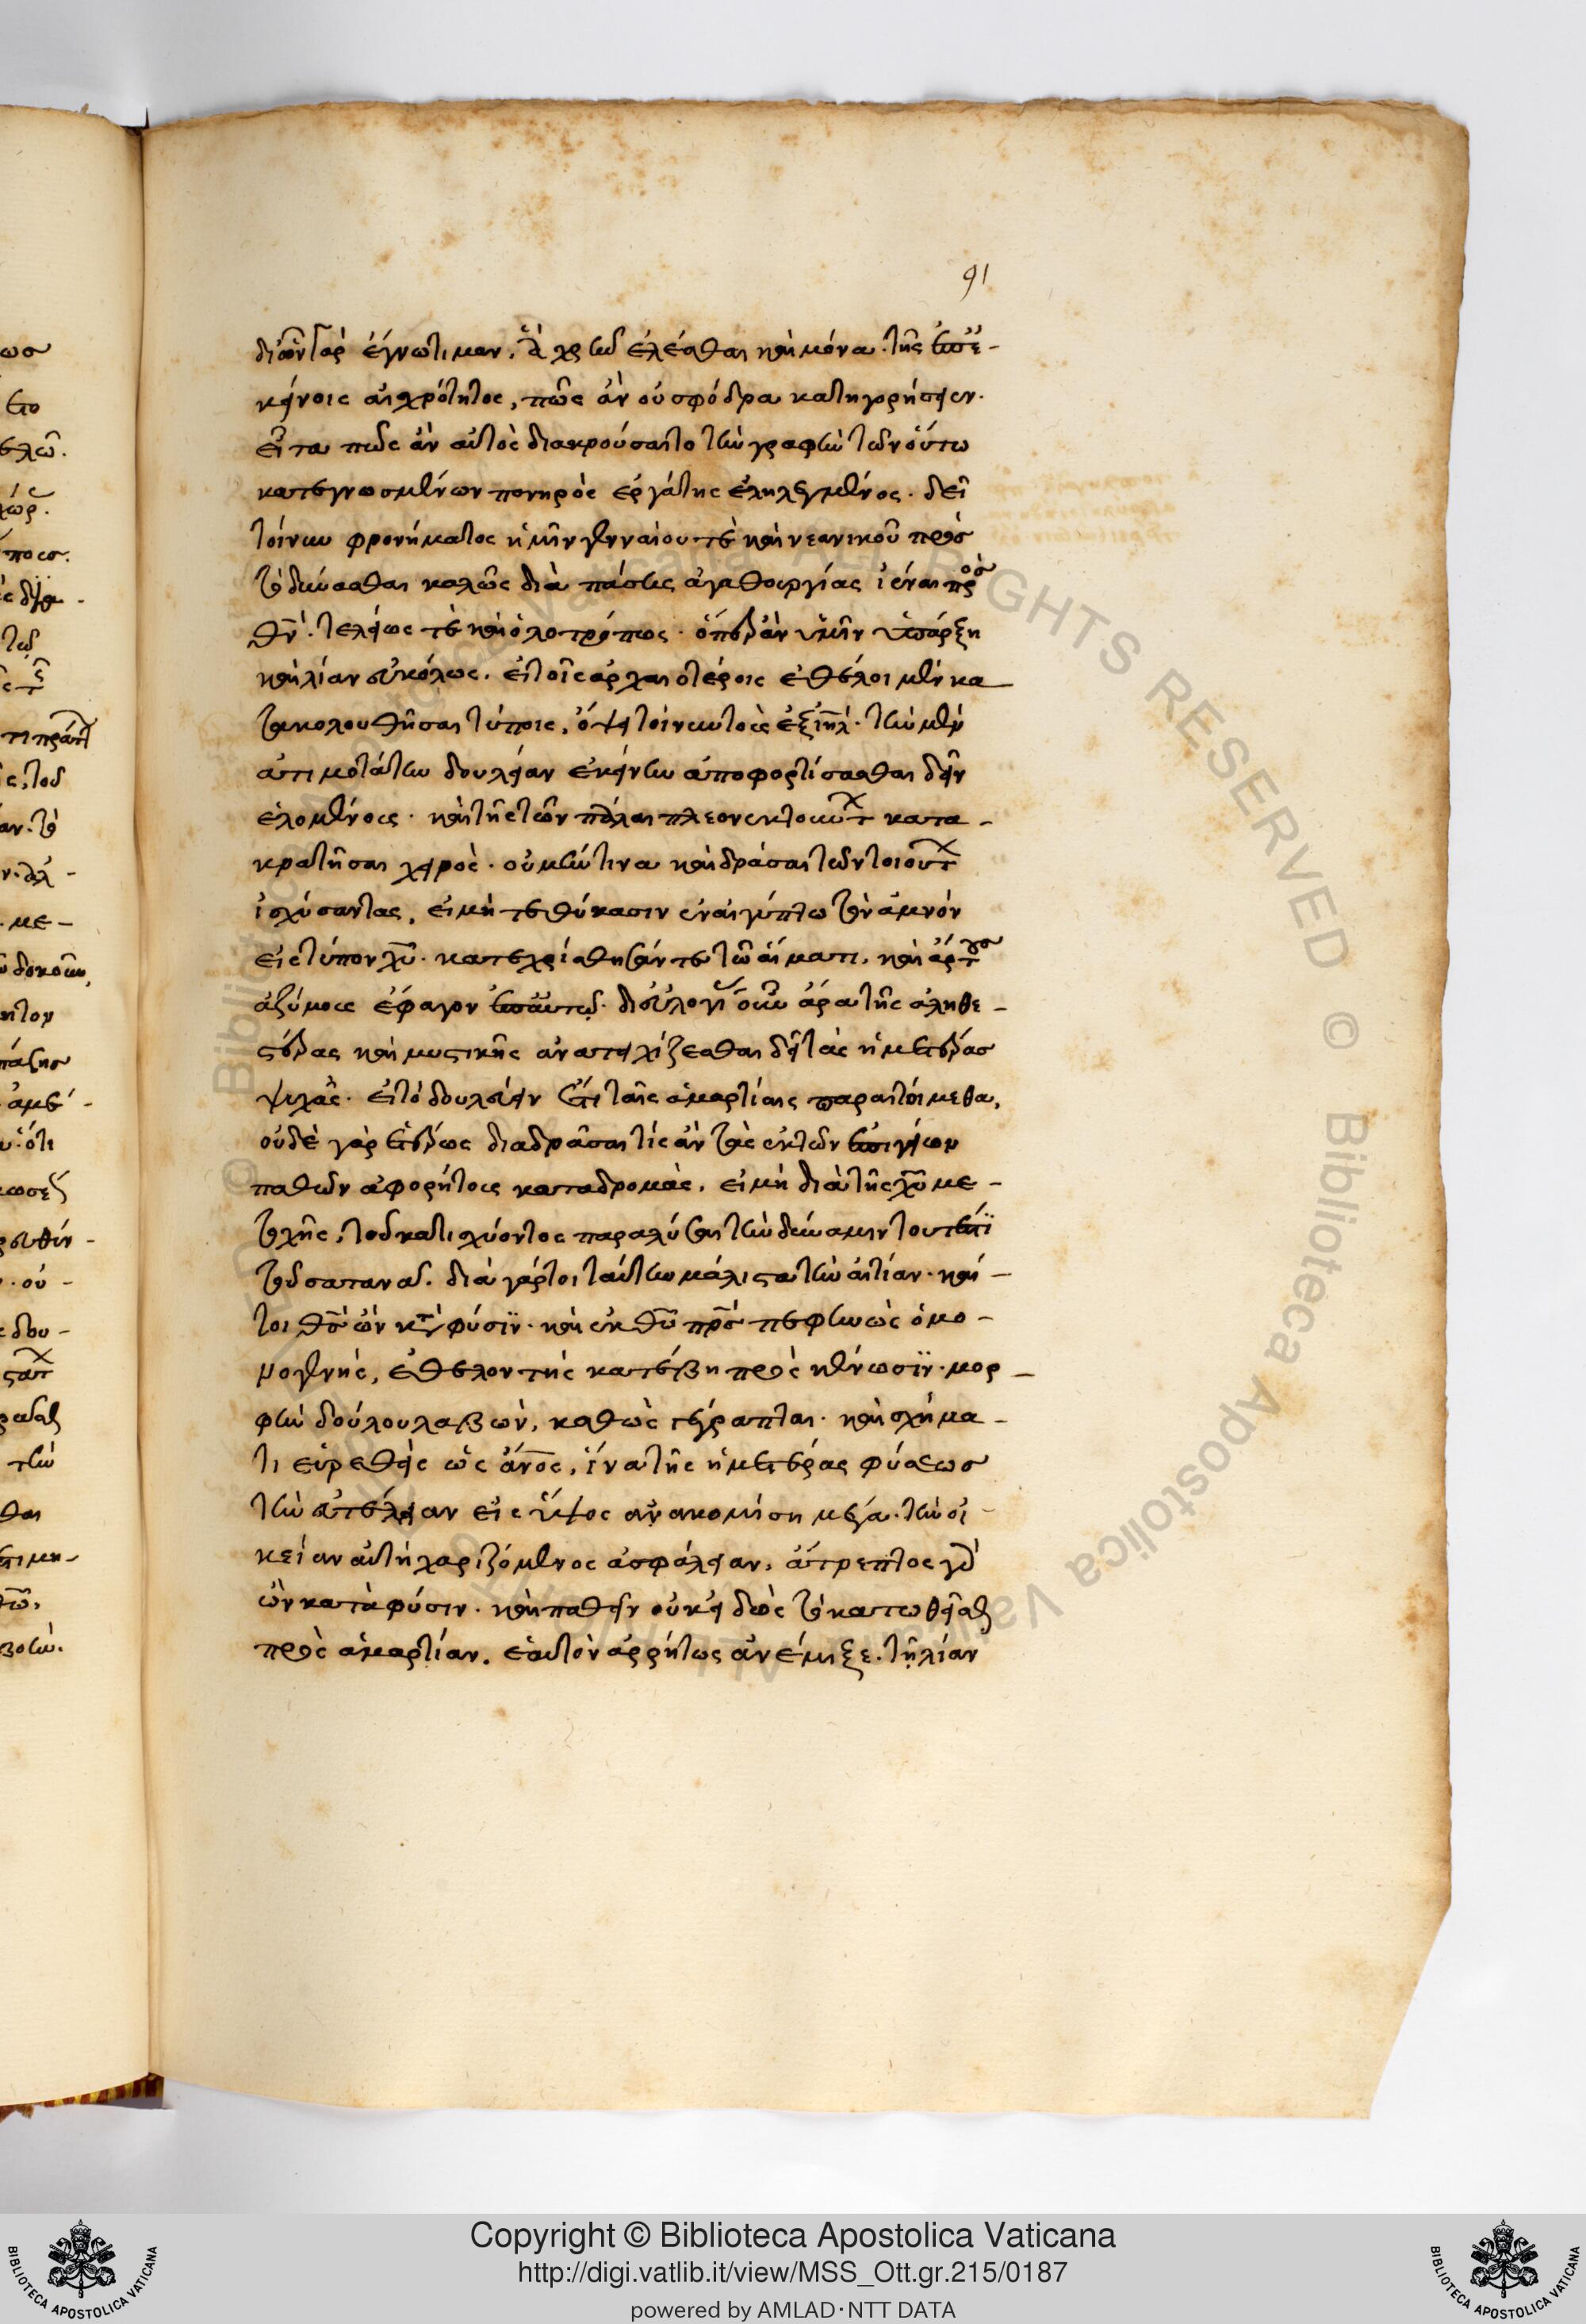 91
δι' ὧν γὰρ ἔγνω τιμᾶν, ἃ χρὴ ἑλέσθαι καὶ μόνα. τῆς ἐπ' ἐ-
κείνοις αἰσχρότητος, πῶς ἂν οὐ σφόδρα κατηγορήσειεν.
εἶτα πῶς ἂν αὐτὸς διακρούσαιτο τὴν γραφὴν τῶν οὕτω
κατεγνωσμένων πονηρὸς ἐργάτης ἐληλεγμένος. δεῖ
τοίνυν φρονήματος ἡμῖν γενναίου τὲ καὶ νεανικοῦ πρὸς
τὸ δύνασθαι καλῶς διὰ πάσης ἀγαθουργίας ἰέναι πρὸς
θν̄. τελείως τὲ καὶ ὁλοτρόπως. ὅπερ ἂν ὑμῖν ὑπάρξη
καὶ λίαν εὐκόλως. εἰ τοῖς ἀρχαιοτέροις ἐθέλοιμεν κα
τακολουθῆσαι τύποις, ὄψει τοίνυν τοὺς ἐξ ιηλ. τὴν μὲν
ἀτιμοτάτην δουλείαν ἐκείνην ἀποφορτίσασθαι δεῖν
ἑλομένους. καὶ τῆς τῶν πάλαι πλεονεκτούντ κατα-
κρατῆσαι χειρός. οὐ μήν τινα καὶ δρᾶσαι τῶν τοιούτ
ἰσχύσαντας, εἰ μὴ τεθύκασιν ἐν αἰγύπτω τὸν ἀμνὸν
εἰς τύπον χυ. κατεχρίσθησάν τε τῶ αἵματι, καὶ ἄρτους
ἀζύμους ἔφαγον ἐπ' αὐτῶ. δι' εὐλογί οὖν ἄρα τῆς ἀληθε-
στέρας καὶ μυστικῆς ἀνατειχίζεσθαι δεῖ τὰς ἡμετέρας
ψυχὰς. εἰ τὸ δουλεύειν ἔτι ταῖς ἁμαρτίαις παραιτοίμεθα,
οὐδὲ γὰρ ἑτέρως διαδρᾶσαι τίς ἂν τὰς ἐκ τῶν ἐπιγείων
παθῶν ἀφορήτους καταδρομὰς, εἰ μὴ διὰ τῆς χυ με-
τοχῆς, τοῦ κατισχύοντος παραλύσαι τὴν δύναμιν τουτέστι
τοῦ σατανᾶ. διὰ γάρ τοι ταύτην μάλιστα τὴν αἰτίαν. καί-
τοι θς ὢν κατὰ φύσιν. καὶ ἐκ θυ πρς πεφηνὼς ὁ μο-
νογενής, ἐθελοντὴς κατέβη πρὸς κένωσιν. μορ-
φὴν δούλου λαβὼν, καθὼς γέγραπται. καὶ σχήμα-
τι εὑρεθεὶς ὡς ἄνος, ἵνα τῆς ἡμετέρας φύσεως
τὴν εὐτέλειαν εἰς ὕψος ἀνακομίση μέγα. τὴν οἰ-
κείαν αὐτῆ χαριζόμενος ἀσφάλειαν, ἄτρεπτος γὰρ
ὢν κατὰ φύσιν. καὶ παθεῖν οὐκ εἰδὼς τὸ κατωθεῖσθαι
πρὸς ἁμαρτίαν, ἑαυτὸν ἀρρήτως ἀνέμιξε. τῆ λίαν
Copyright © Biblioteca Apostolica Vaticana
http://digi.vatlib.it/view/MSS_Ott.gr.215/0187
powered by AMLAD·NTT DATA
BIBLIOTECA APOSTOLICA VATICANA
BIBLIOTECA APOSTOLICA VATICANA